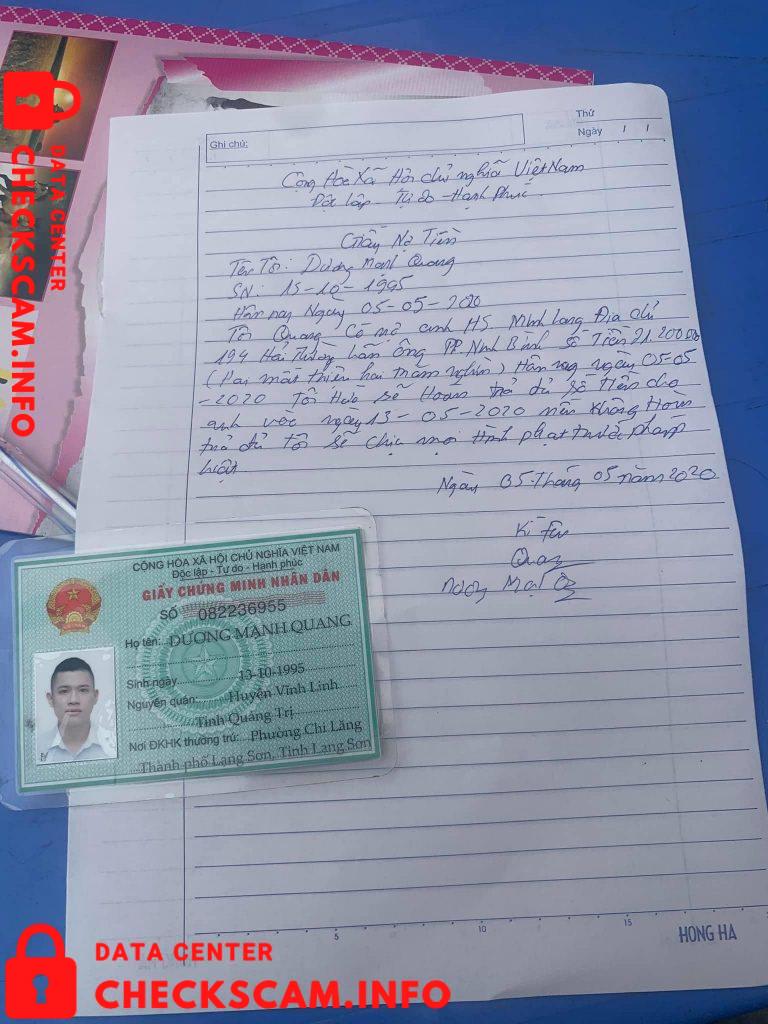 Thứ
Ghi chú:
Ngày / /
Cộng Hoà Xã Hội chủ nghĩa Việt Nam
Độc lập - Tự do - Hạnh Phúc
Giấy Nợ Tiền
Tên Tôi: Dương Mạnh Quang
SN: 13-10-1995
Hôm nay Ngày 05-05-2020
Tôi Quang Có nợ anh HS. Minh Long Địa chỉ
194 Hải Thượng Lãn Ông PP Ninh Bình số Tiền 21.200.000
(Hai mốt thiệu hai trăm nghìn) Hôm nay ngày 05-05
-2020 Tôi Hứa sẽ Hoàn trả đủ số tiền cho
anh vào ngày 13-05-2020 nếu không Hoàn
trả đủ tôi sẽ chịu mọi hình phạt trước pháp
luật
Ngày 05 Tháng 05 năm 2020
Kí tên
Quang
CỘNG HÒA XÃ HỘI CHỦ NGHĨA VIỆT NAM
Độc lập - Tự do - Hạnh phúc
GIẤY CHỨNG MINH NHÂN DÂN
SỐ 082236955
Họ tên: DƯƠNG MẠNH QUANG
Sinh ngày 13-10-1995
Nguyên quán Huyện Vĩnh Linh
Tỉnh Quảng Trị
Nơi ĐKHK thường trú: Phường Chi Lăng
Thành phố Lạng Sơn, Tỉnh Lạng Sơn
5 10 15
HONG HA
DATA CENTER
CHECKSCAM.INFO
DATA CENTER
CHECKSCAM.INFO